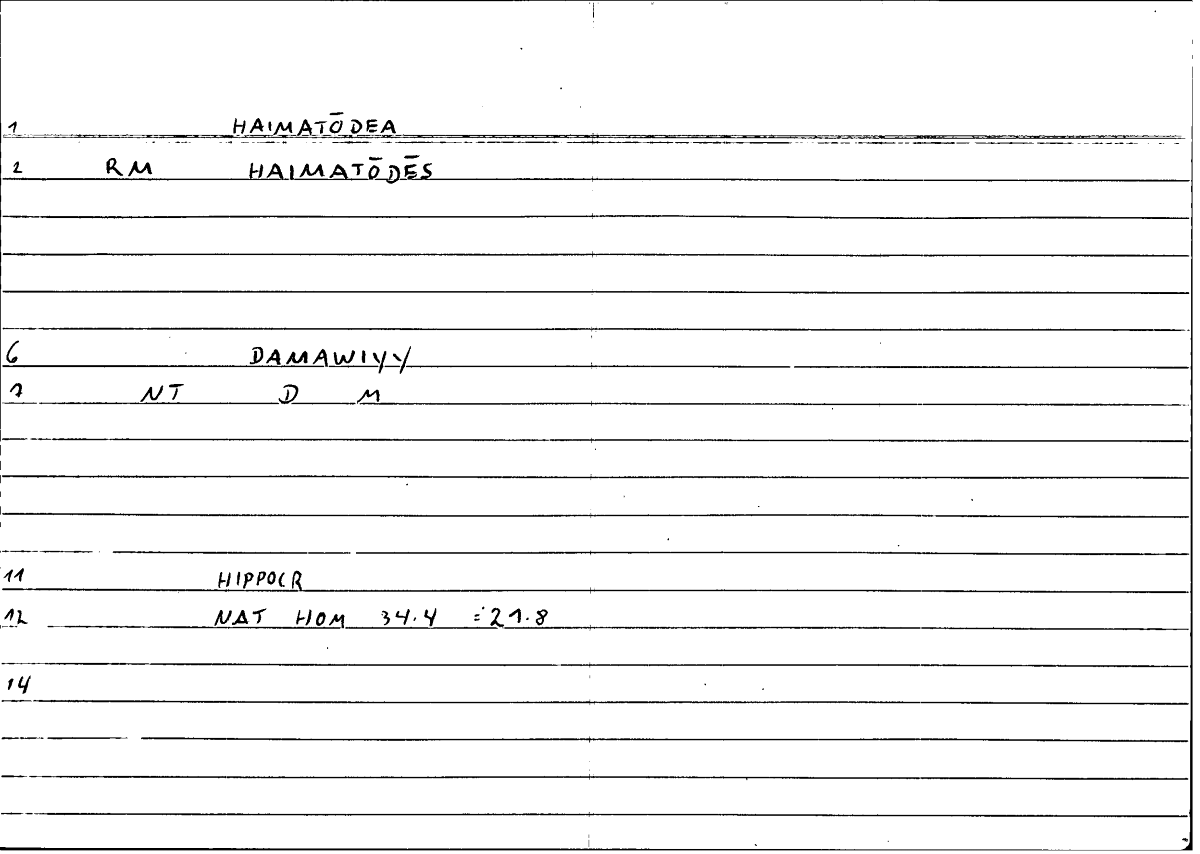 1 HAIMATŌDEA
2 RM HAIMATŌDĒS
6 DAMAWIYY
7 NT D M
11 HIPPOCR
12 NAT HOM 34.4 = 21.8
14